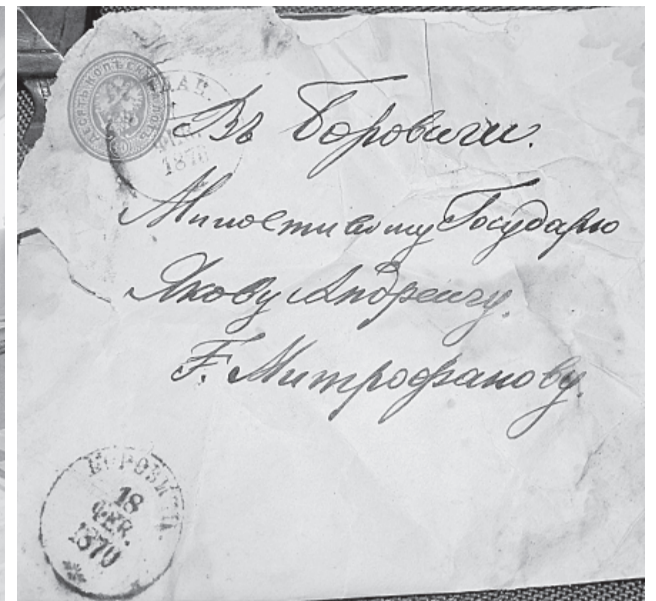 ДЕСЯТЬ КОП.
1870
Въ Боровичи.
Милостивому Государю
Якову Андреичу.
Г. Митрофанову.
БОРОВИЧИ.
18
ФЕВ.
1870